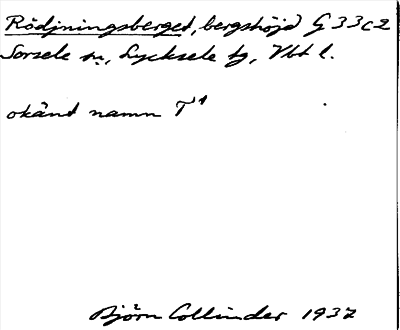 Rödjningsberget, bergshöjd G 33c2
Sorsele sn, Lycksele tg, Vbt l.
okänd namn T¹
Björn Collinder 1937